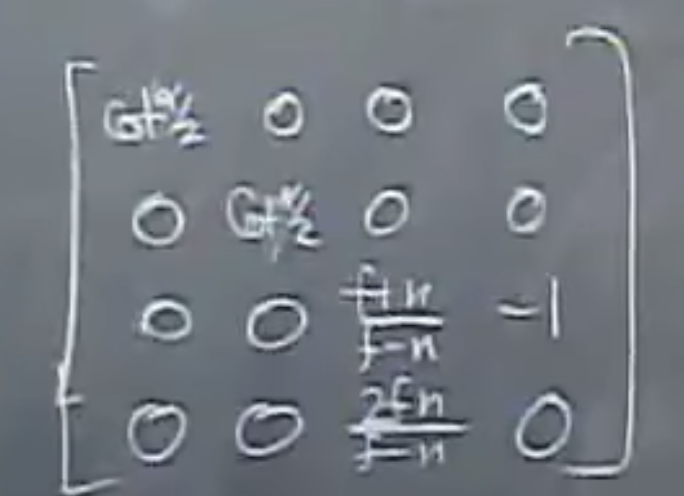 Cot α/2 0 0 0
0 Cot α/2 0 0
0 0 f+n/f-n -1
0 0 2fn/f-n 0